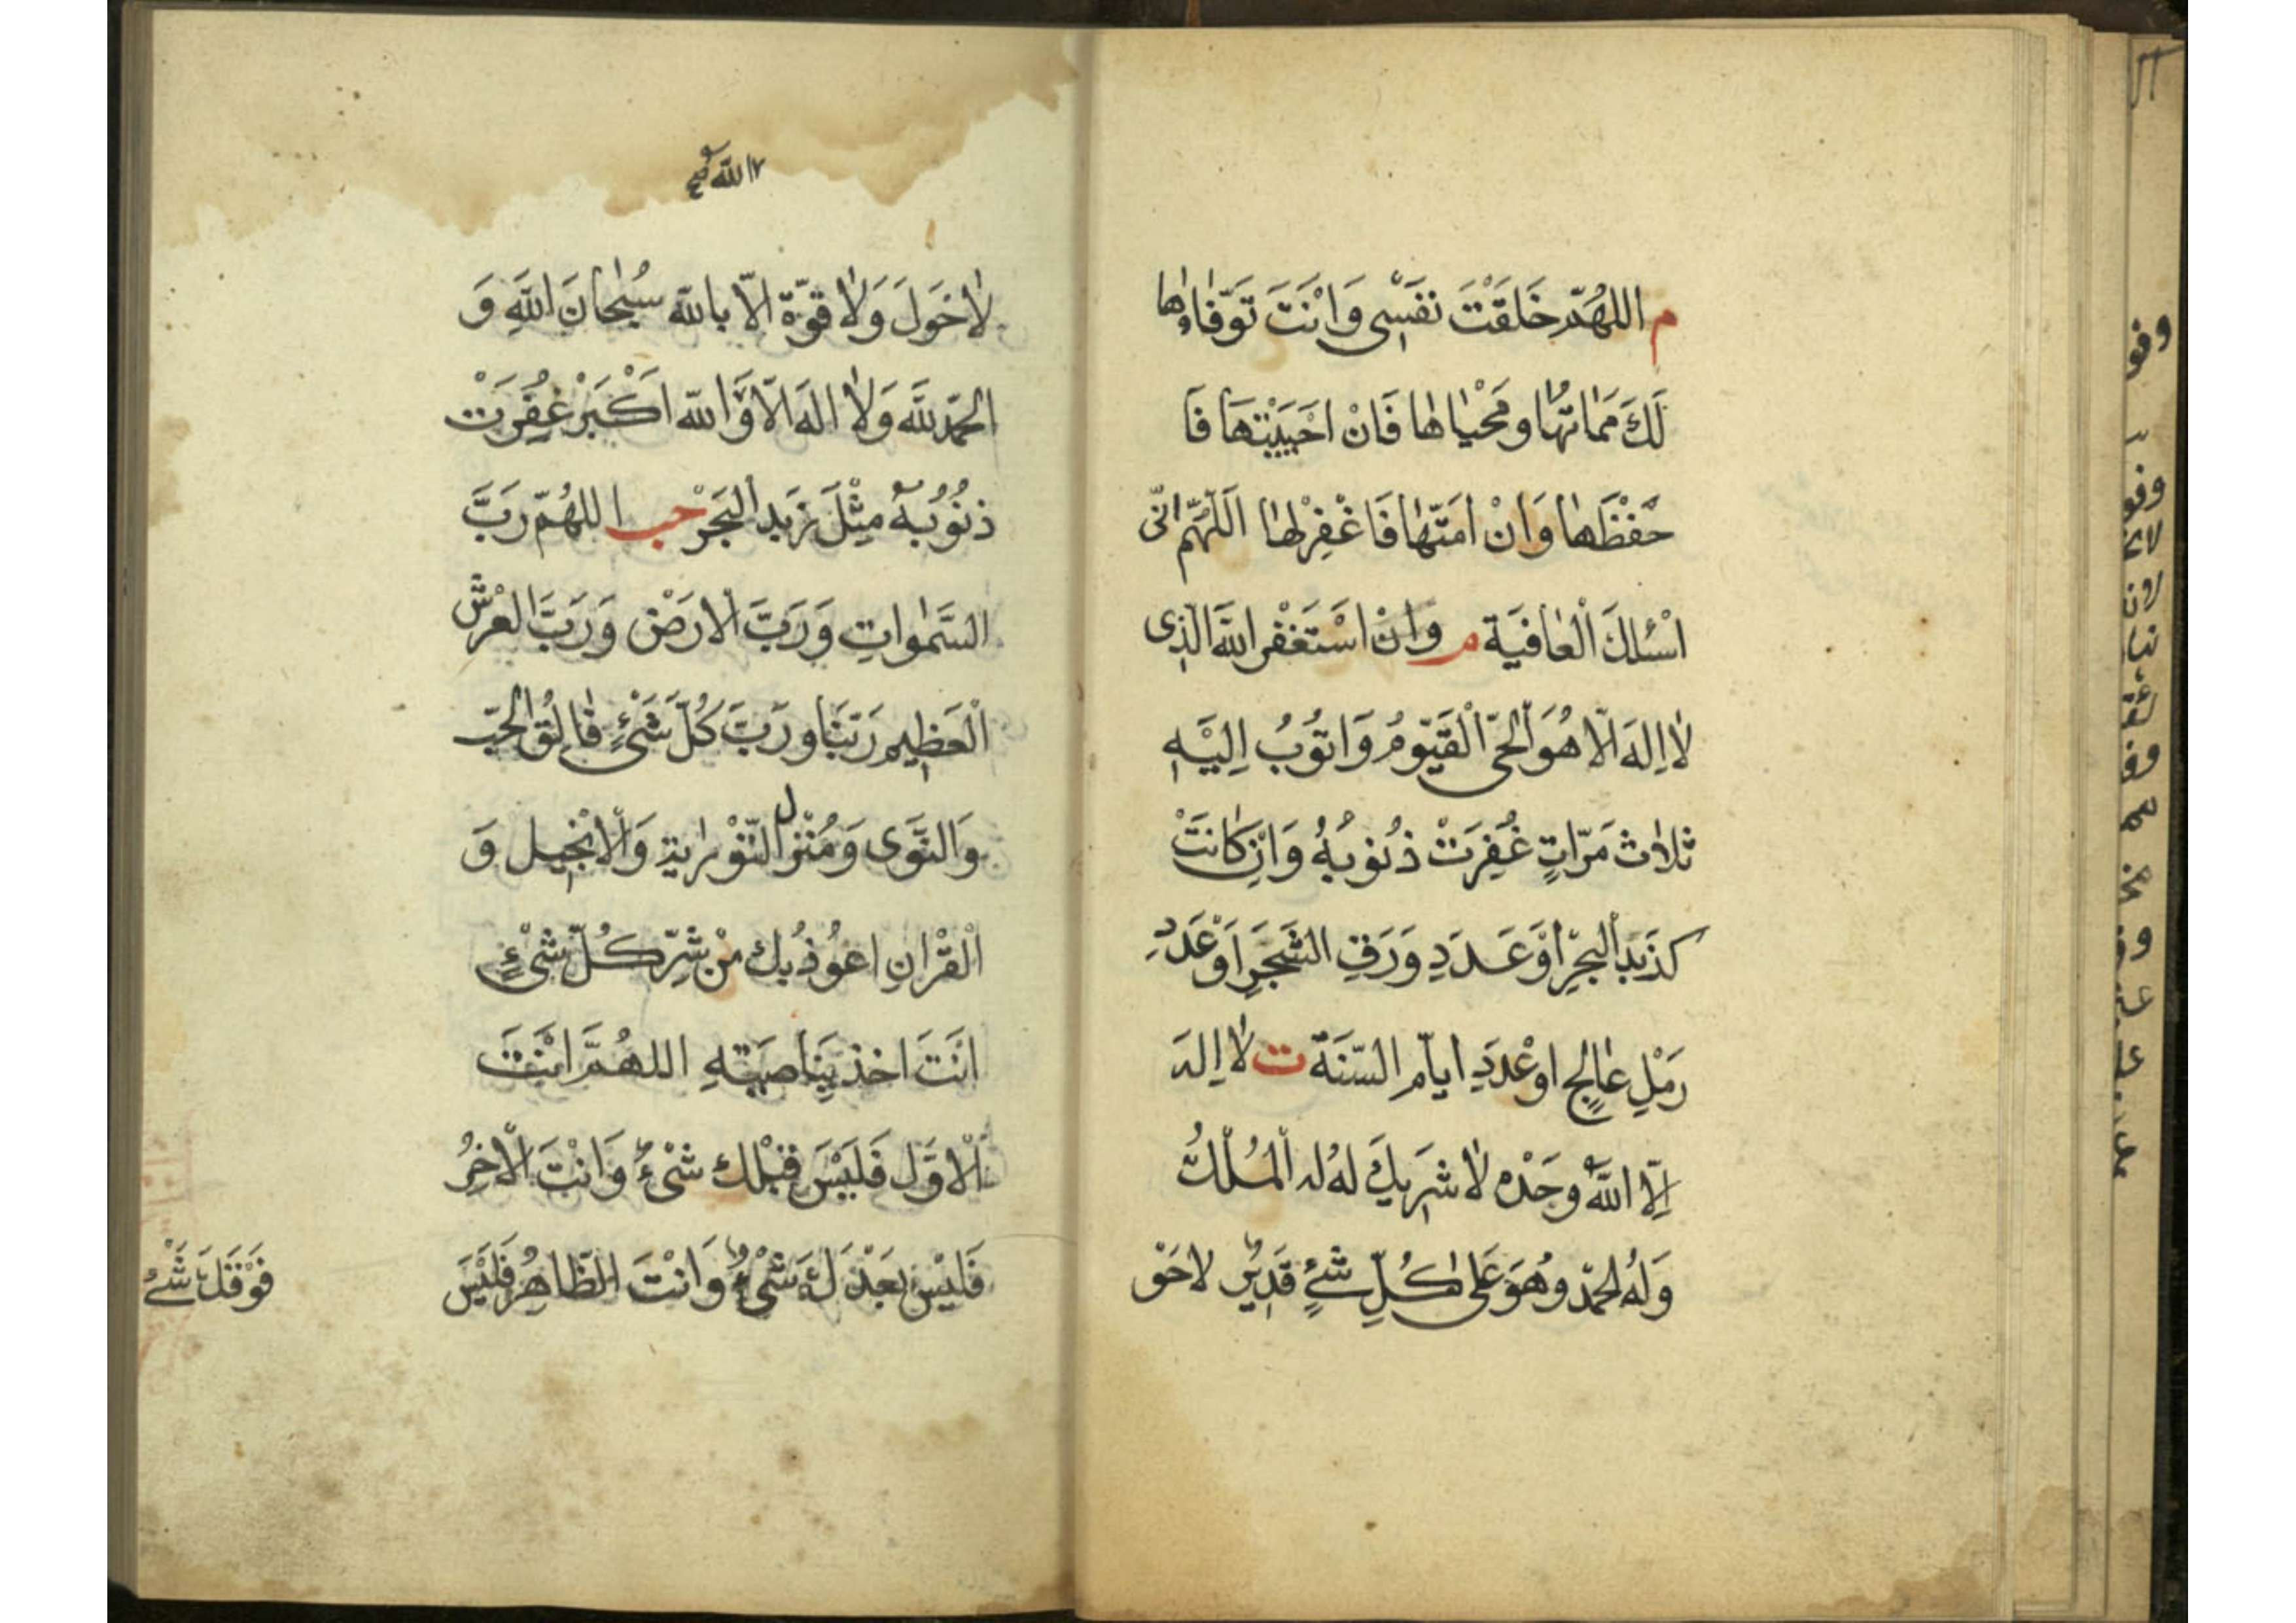 م اللهُمّ خَلَقْتَ نفَسْى وَانْتَ تَوَفّاوها
لَكَ مَمَاتُها ومَحْيَاها فَانْ احْيَيْتهَا فَا
حْفَظْها وَانْ امَتّها فَا غْفِرْلها اَللّهُمّ انّى
اسْئلكَ الْعَافيَة م وان اسْتَغفر اللهَ الّذِى
لا اِلهَ الّا هُوَ الْحَىّ الْقَيّوُمُ وَاتوُبُ اِلَيْهِ
ثلاث مَرّاتٍ غُفِرَتْ ذُنوُبُهُ وَاِن كَانتْ
كذَبَد البحْرِ اوْ عَدَدِ وَرَقِ الشّجَرِ اَوْ عَدَدِ
رَمْلِ عَالِجٍ اوْ عْدَدِ ايّامِ السّنَة ت لا اِله
اِلّا اللهُ وحَدْه لا شَرِيكَ لهُ له الْمُلْكُ
وَلهُ الحمْدُ وهُوَ عَلى كُلّ شئٍ قدِيْرٌ لا حَوْ
لا اللهُ صح
لا حَوَلَ وَلا قوّة الّا بالله سُبْحانَ اللهِ وَ
الحمْدُ للهِ وَلا الهَ الّا وَّالله اَكْبَرْ غفِرَتْ
ذنوُبُهُ مِثْلَ زَبَد الْبَحَرْ حب اللهُمّ رَبَّ
السَّمَواتِ وَرَبَّ الْارَضْ وَرَبَّ العْرَشْ
الْعَظِيم رَبّنَا ورَبَّ كُلّ شَئٍ فالقُ الْحَبّ
وَالنَّوَى وَمُنْزل التّوْرايةِ وَالْانْجِيل وَ
الْقرْانِ اعوُذُ بك مْن شَرّ كُلّ شئٍ
انَتَ اخذ بِنَاصِيَتهِ اللهُمَّ انْتَ
الْاوَّل فَلَيْسَ قبْلك شَىْءٌ وَانْتَ الْاخِرُ
فَليْسَ بعَدْ لكَ شَىْءٌ وَانْتَ الظّاهِرُ فَليْسَ
فوْقَكَ شَئٌ